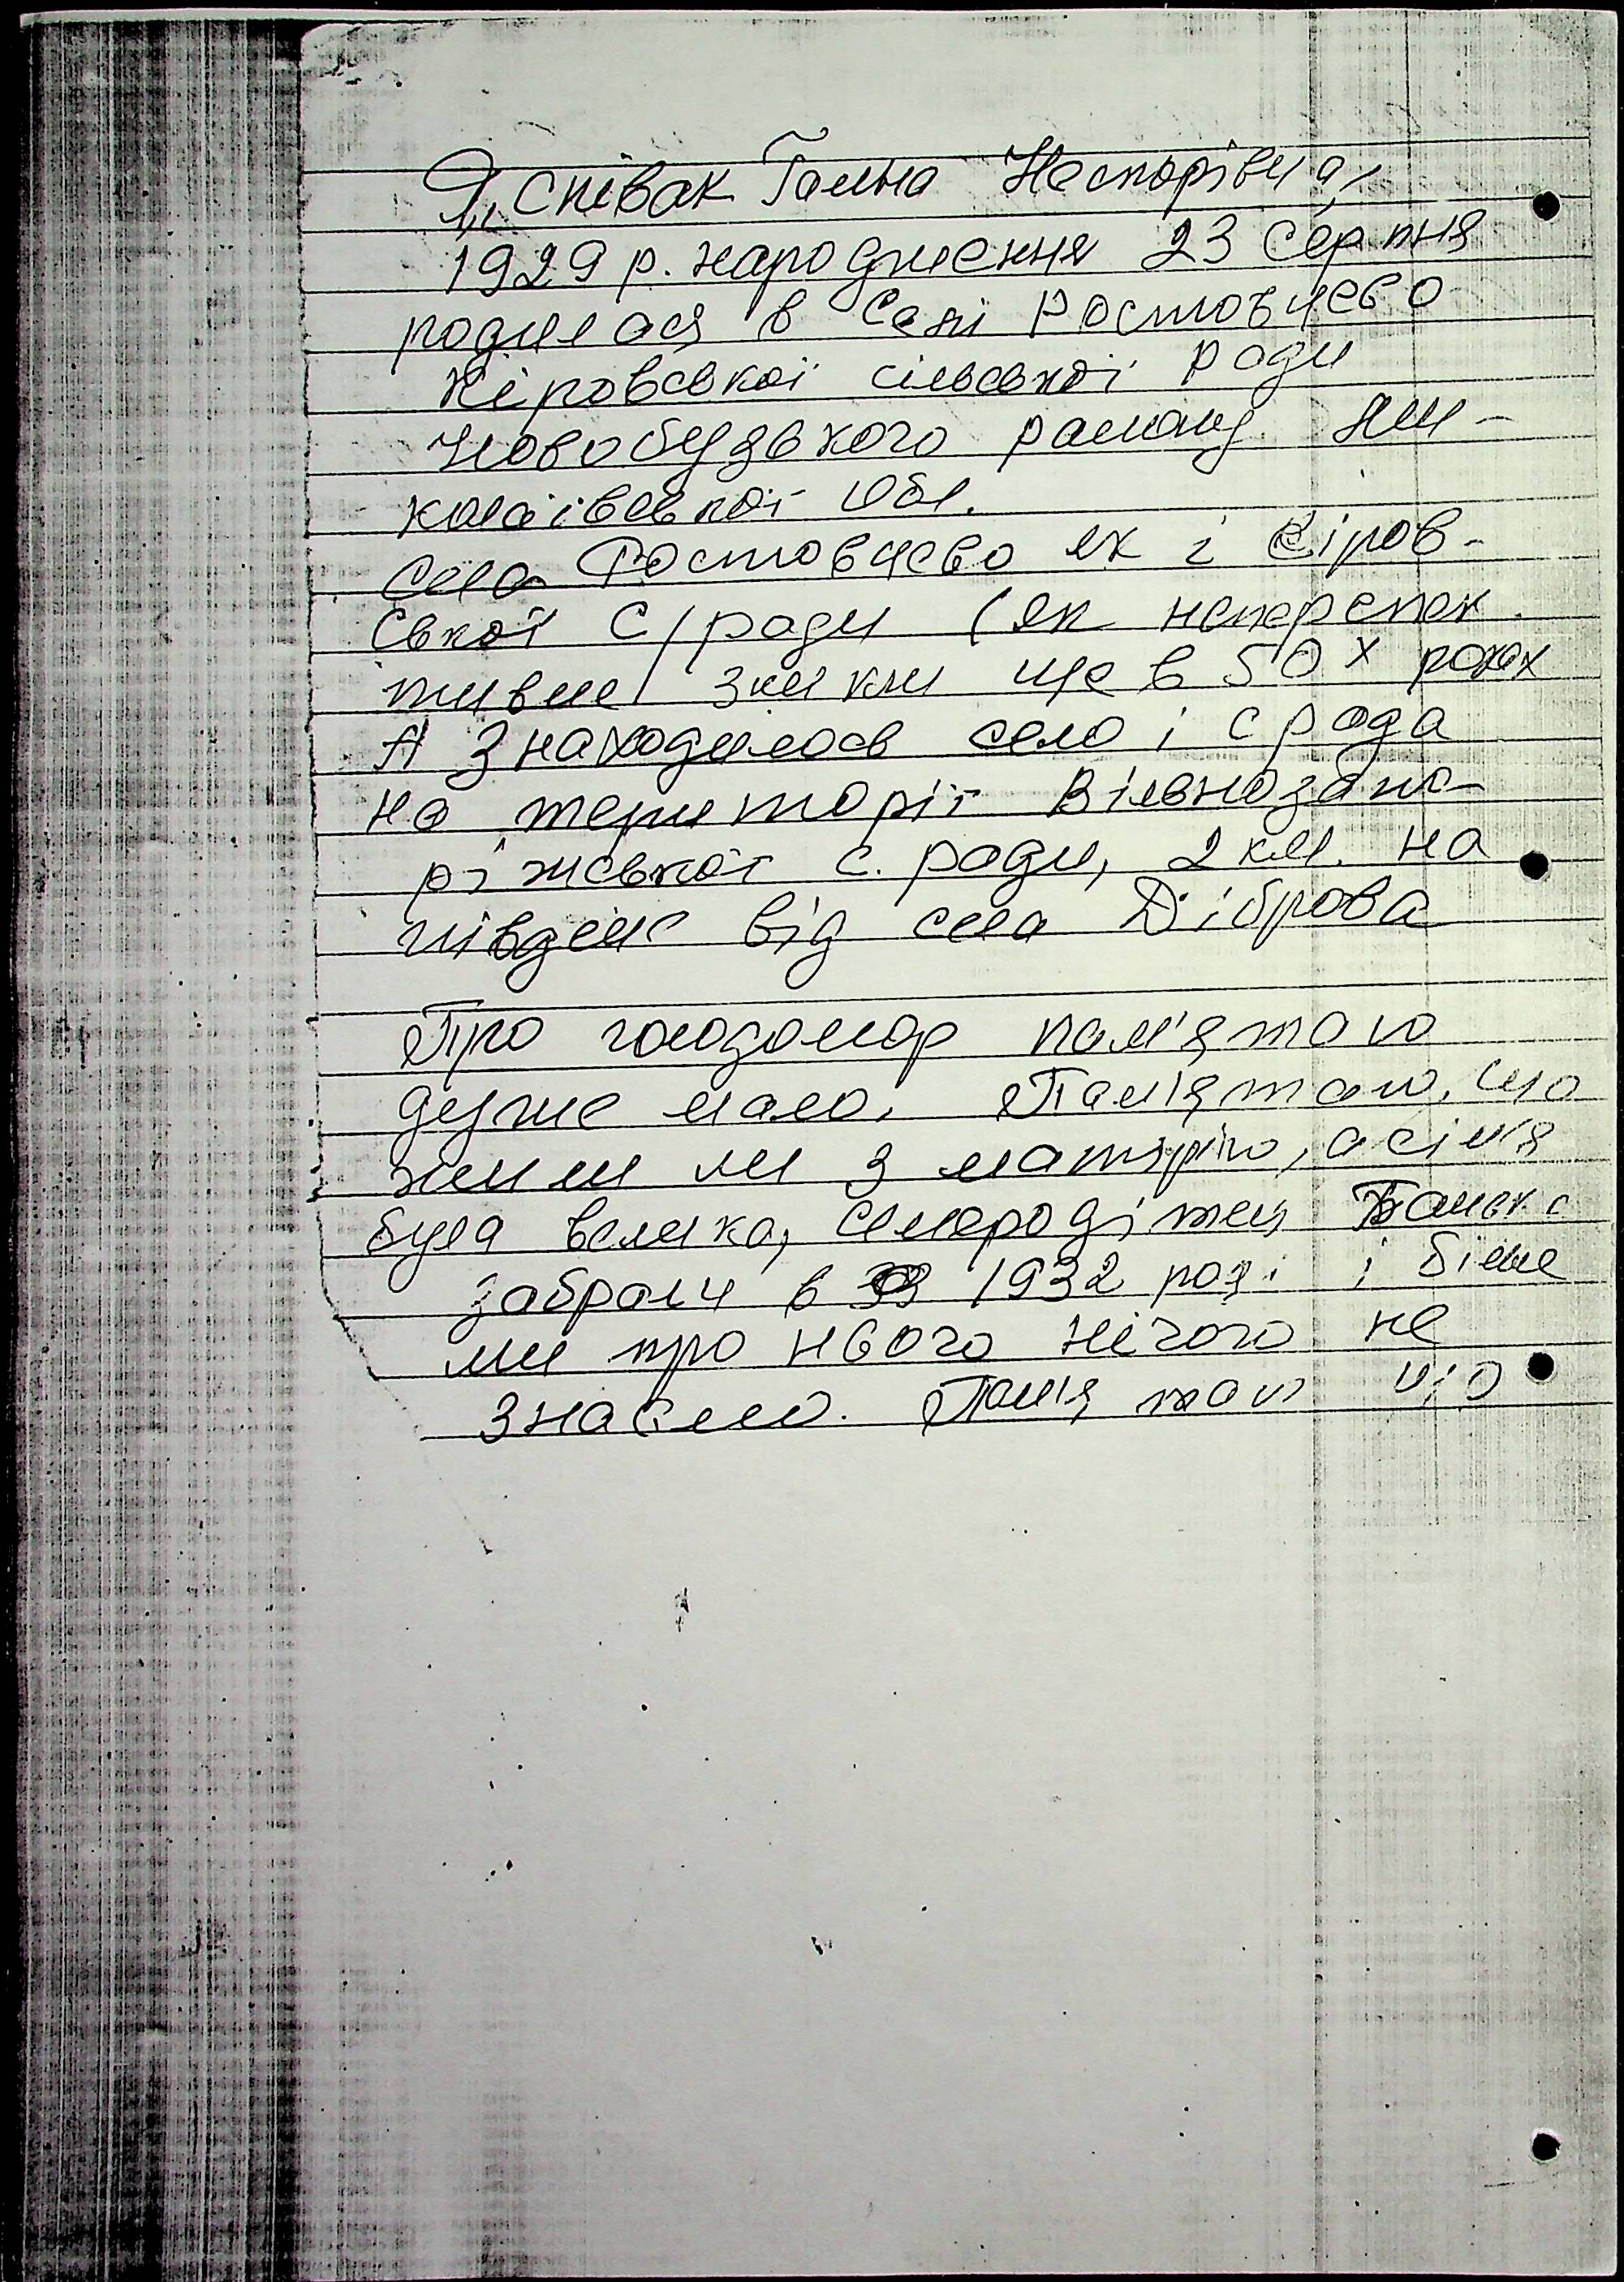 Я, Співак Галина Несторівна,
1929 р. народження 23 Серпня
родилася в Селі Ростовцево
Кіровської сільської Ради
Новобузького району. Ми-
колаївської Обл.
Села Ростовцево як і Кіров-
ської С/ради (як неперспек
тивне) зникли ще в 50х роках
А Знаходилось село і с рада
на території Вільнозапо-
ріжської с. ради, 2 км. на
південь від села Діброва
Про голодомор пам'ятаю
дуже мало. Пам'ятаю, що
жили ми з матірю, а сім'я
була велика, Семеро дітей Батька
забрали в 1932 році і більше
ми про нього нічого не
знаємо. Пам'ятаю що